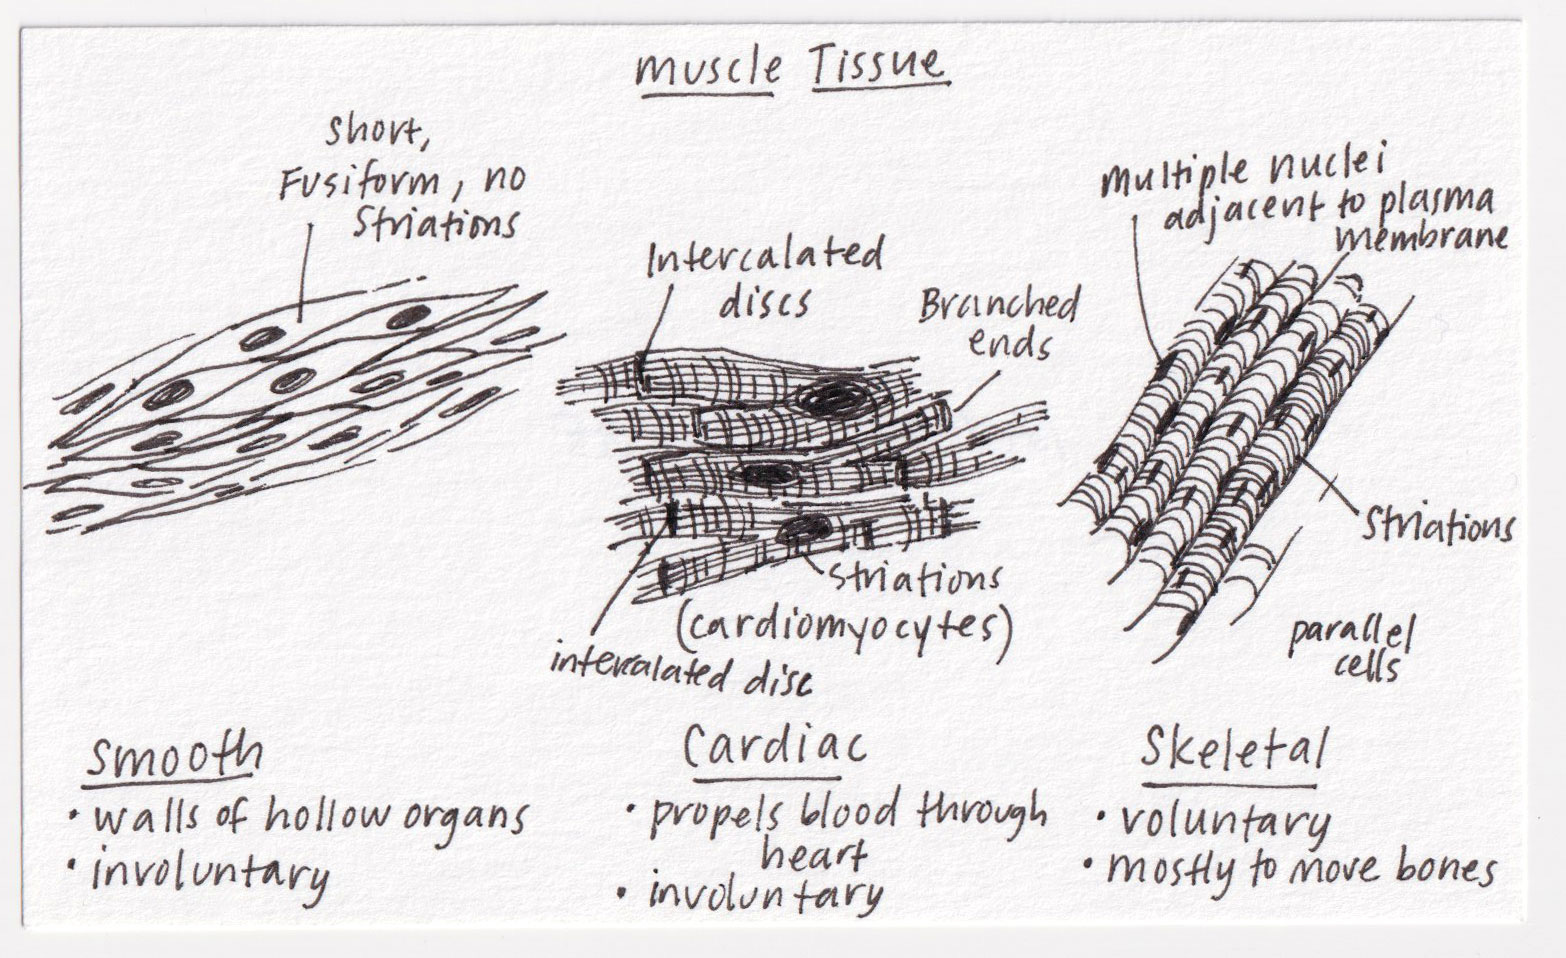 Muscle Tissue
Short,
Fusiform, no
Striations
Intercalated
discs
Branched
ends
Multiple nuclei
adjacent to plasma
membrane
Striations
Striations
(cardiomyocytes)
intercalated disc
parallel
cells
Smooth
• walls of hollow organs
• involuntary
Cardiac
• propels blood through
heart
• involuntary
Skeletal
• voluntary
• mostly to move bones